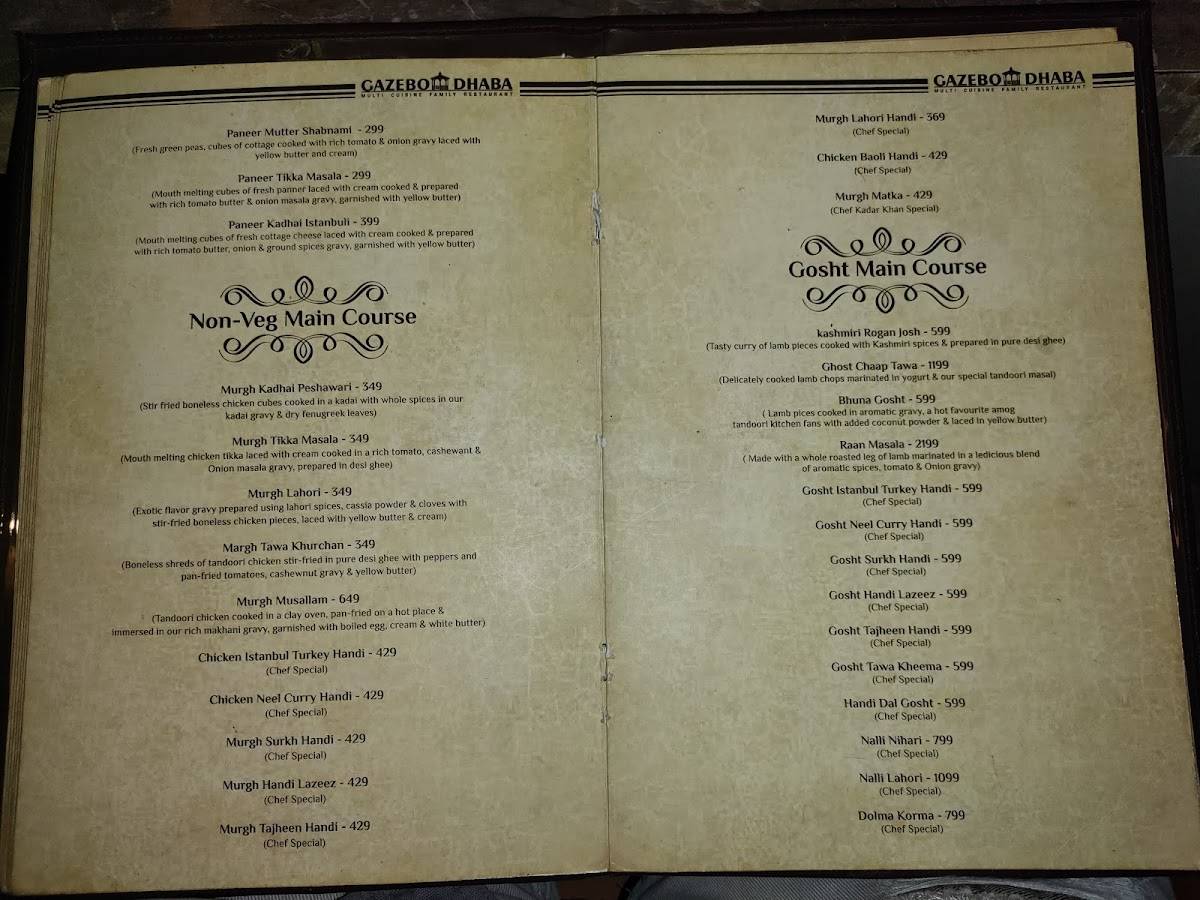 GAZEBO DHABA
MULTI CUISINE FAMILY RESTAURANT
Paneer Mutter Shabnami - 299
(Fresh green peas, cubes of cottage cooked with rich tomato & onion gravy laced with
yellow butter and cream)
Paneer Tikka Masala - 299
(Mouth melting cubes of fresh panner laced with cream cooked & prepared
with rich tomato butter & onion masala gravy, garnished with yellow butter)
Paneer Kadhai Istanbuli - 399
(Mouth melting cubes of fresh cottage cheese laced with cream cooked & prepared
with rich tomato butter, onion & ground spices gravy, garnished with yellow butter)
Non-Veg Main Course
Murgh Kadhai Peshawari - 349
(Stir fried boneless chicken cubes cooked in a kadai with whole spices in our
kadai gravy & dry fenugreek leaves)
Murgh Tikka Masala - 349
(Mouth melting chicken tikka laced with cream cooked in a rich tomato, cashewant &
Onion masala gravy, prepared in desi ghee)
Murgh Lahori - 349
(Exotic flavor gravy prepared using lahori spices, cassia powder & cloves with
stir-fried boneless chicken pieces, laced with yellow butter & cream)
Margh Tawa Khurchan - 349
(Boneless shreds of tandoori chicken stir-fried in pure desi ghee with peppers and
pan-fried tomatoes, cashewnut gravy & yellow butter)
Murgh Musallam - 649
(Tandoori chicken cooked in a clay oven, pan-fried on a hot place &
immersed in our rich makhani gravy, garnished with boiled egg, cream & white butter)
Chicken Istanbul Turkey Handi - 429
(Chef Special)
Chicken Neel Curry Handi - 429
(Chef Special)
Murgh Surkh Handi - 429
(Chef Special)
Murgh Handi Lazeez - 429
(Chef Special)
Murgh Tajheen Handi - 429
(Chef Special)
GAZEBO DHABA
MULTI CUISINE FAMILY RESTAURANT
Murgh Lahori Handi - 369
(Chef Special)
Chicken Baoli Handi - 429
(Chef Special)
Murgh Matka - 429
(Chef Kadar Khan Special)
Gosht Main Course
kashmiri Rogan Josh - 599
(Tasty curry of lamb pieces cooked with Kashmiri spices & prepared in pure desi ghee)
Ghost Chaap Tawa - 1199
(Delicately cooked lamb chops marinated in yogurt & our special tandoori masal)
Bhuna Gosht - 599
( Lamb pices cooked in aromatic gravy, a hot favourite amog
tandoori kitchen fans with added coconut powder & laced in yellow butter)
Raan Masala - 2199
( Made with a whole roasted leg of lamb marinated in a ledicious blend
of aromatic spices, tomato & Onion gravy)
Gosht Istanbul Turkey Handi - 599
(Chef Special)
Gosht Neel Curry Handi - 599
(Chef Special)
Gosht Surkh Handi - 599
(Chef Special)
Gosht Handi Lazeez - 599
(Chef Special)
Gosht Tajheen Handi - 599
(Chef Special)
Gosht Tawa Kheema - 599
(Chef Special)
Handi Dal Gosht - 599
(Chef Special)
Nalli Nihari - 799
(Chef Special)
Nalli Lahori - 1099
(Chef Special)
Dolma Korma - 799
(Chef Special)